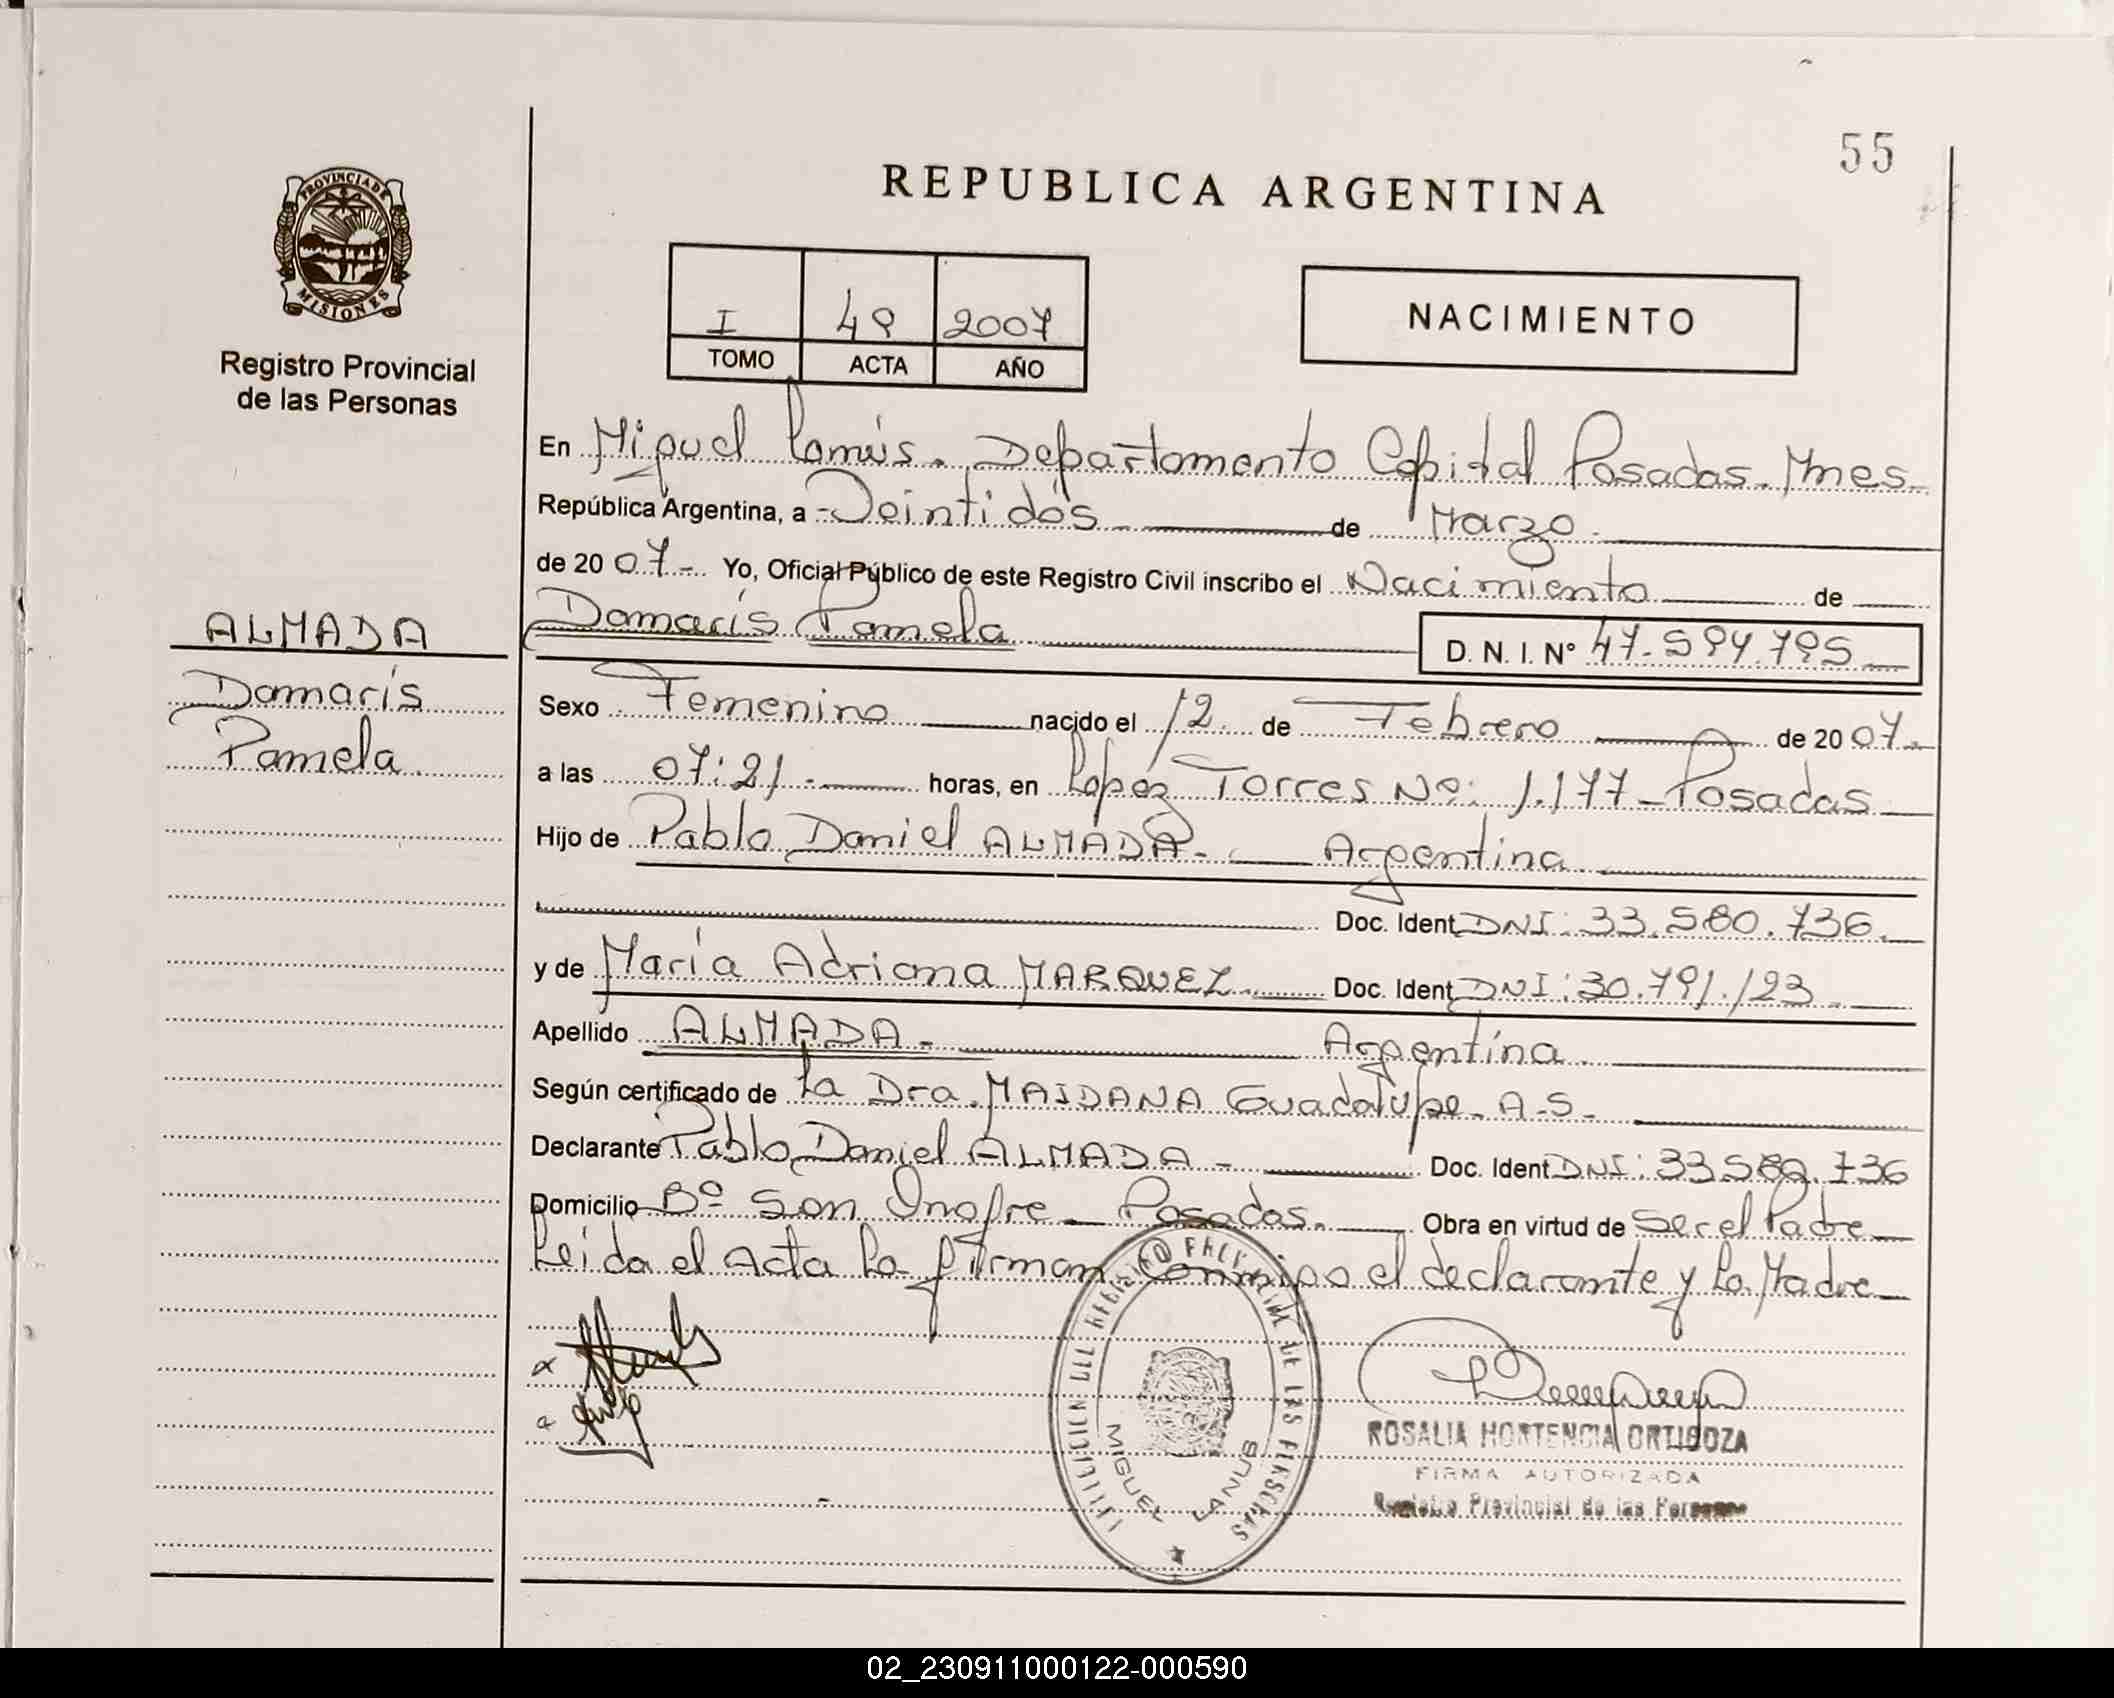 55
REPUBLICA ARGENTINA
PROVINCIA DE
MISIONES
Registro Provincial
de las Personas
I 49 2007
TOMO ACTA AÑO
NACIMIENTO
En Miguel Lanús. Departamento Capital Posadas. Mnes
República Argentina, a Veintidós de Marzo.
de 2007 Yo, Oficial Público de este Registro Civil inscribo el Nacimiento de
Damarís Pamela
D. N. I. Nº 47.594.795
ALMADA
Damarís
Pamela
Sexo Femenino nacido el 12 de Febrero de 2007
a las 07:21 horas, en López Torres No: 1.177 Posadas
Hijo de Pablo Daniel ALMADA Argentina
Doc. Ident DNI: 33.580.736
y de María Adriana MARQUEZ Doc. Ident DNI: 30.791.123
Apellido ALMADA Argentina
Según certificado de La Dra. MAIDANA Guadalupe A.S.
Declarante Pablo Daniel ALMADA Doc. Ident DNI: 33.580.736
Domicilio Bº San Onofre Posadas. Obra en virtud de Ser el Padre
Leída el Acta la firman conmigo el declarante y la Madre
MIGUEL LANUS
ROSALIA HORTENCIA ORTIGOZA
FIRMA AUTORIZADA
Registro Provincial de las Personas
02_230911000122-000590